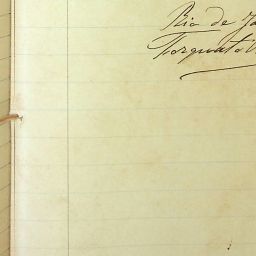 Rio de Ja
Torquato